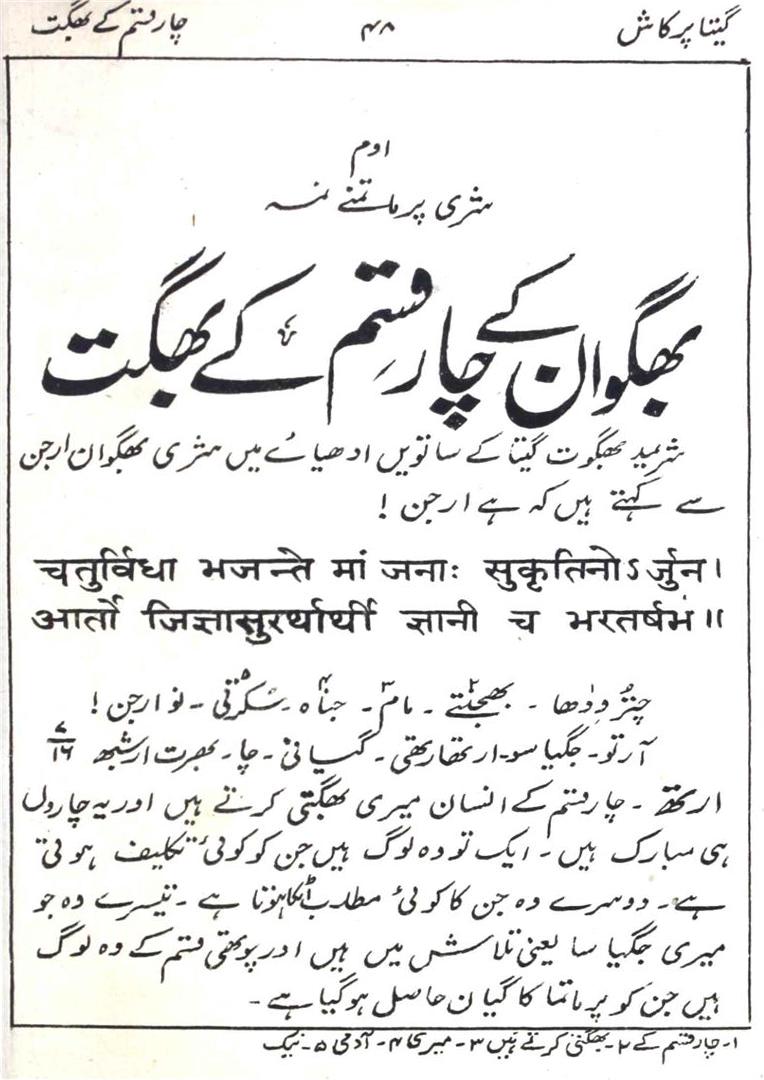 گیتا پرکاش ۴۸ چار قسم کے بھگت
اوم
شری پرماتمنے نمہ
بھگوان کے چار قسم کے بھگت
شریمد بھگوت گیتا کے ساتویں ادھیائے میں شری بھگوان ارجن
سے کہتے ہیں کہ ہے ارجن !
चतुर्विधा भजन्ते मां जनाः सुकृतिनोऽर्जुन।
आर्तो जिज्ञासुरर्थार्थी ज्ञानी च भरतर्षभ॥
چتُروِدھا ۔ بھجنتے ۔ مام ۔ جناہ ۔ سُکرتی ۔ نو ارجن !
آرتو ۔ جگیاسو ۔ ارتھارتھی ۔ گیانی ۔ چا ۔ بھرت ارشبھ ۷/۱۶
ارتھ ۔ چار قسم کے انسان میری بھگتی کرتے ہیں اور یہ چاروں
ہی مبارک ہیں ۔ ایک تو وہ لوگ ہیں جن کو کوئی تکلیف ہوتی
ہے ۔ دوسرے وہ جن کا کوئی مطلب اٹکا ہوتا ہے ۔ تیسرے وہ جو
میری جگیاسا یعنی تلاش میں ہیں اور چوتھی قسم کے وہ لوگ
ہیں جن کو پرماتما کا گیان حاصل ہوگیا ہے ۔
۱۔ چار قسم کے ۲۔ بھگتی کرتے ہیں ۳۔ میری ۴۔ آدمی ۵۔ نیک